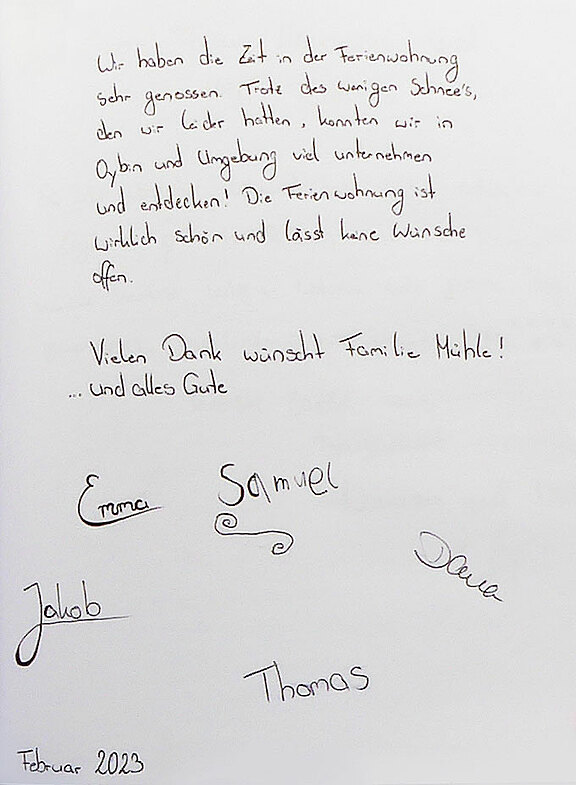 Wir haben die Zeit in der Ferienwohnung
sehr genossen. Trotz des wenigen Schnee's,
den wir leider hatten, konnten wir in
Oybin und Umgebung viel unternehmen
und entdecken! Die Ferienwohnung ist
wirklich schön und lässt keine Wünsche
offen.
Vielen Dank wünscht Familie Mühle!
... und alles Gute
Emma
Samuel
Dana
Jakob
Thomas
Februar 2023